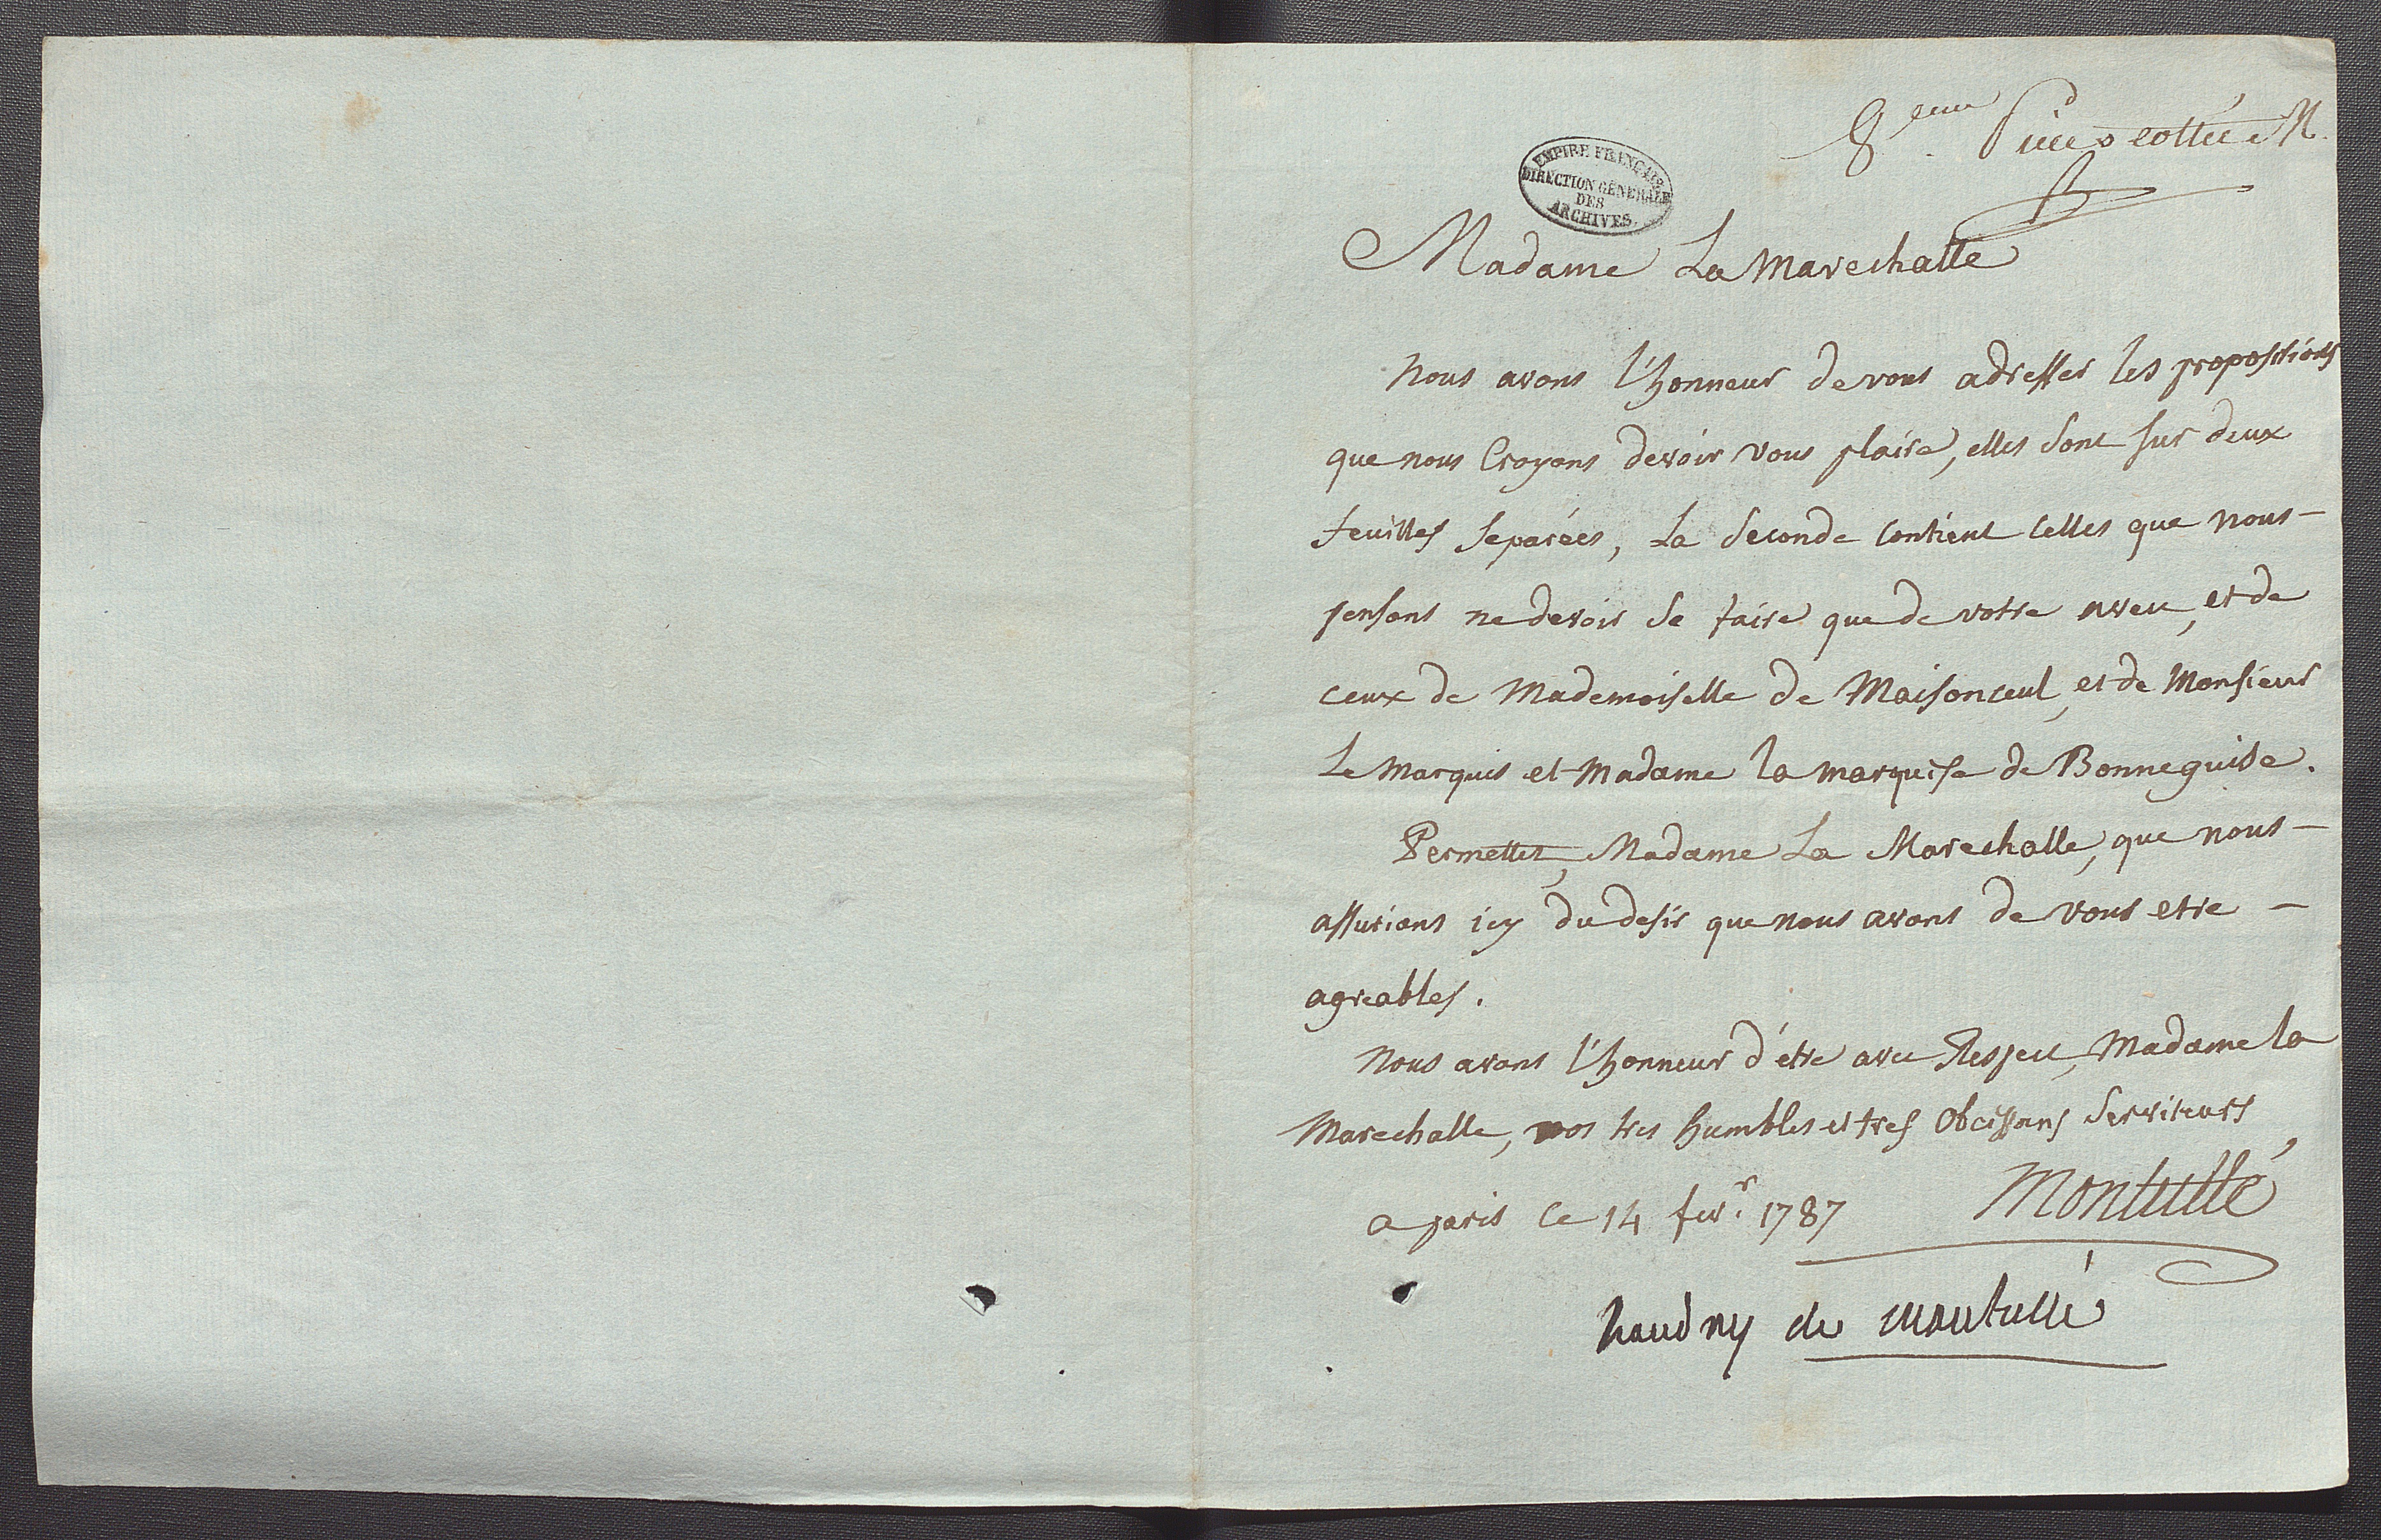 8eme Piece cottée M.
EMPIRE FRANÇAIS
DIRECTION GÉNÉRALE
DES
ARCHIVES.
Madame La Marechalle
Nous avons l'honneur de vous adresser les propositions
que nous Croyons devoir vous plaire, elles sont sur deux
feuilles separées, La seconde contient celles que nous –
pensons ne devoir se faire que de votre aveu, et de
ceux de Mademoiselle de Maisonceul, et de Monsieur
Le Marquis et Madame la marquise de Bonneguise.
Permettez, Madame La Marechalle, que nous –
assurions icy du desir que nous avons de vous etre –
agreables.
Nous avons l'honneur d'étre avec Respect, Madame la
Marechalle, vos tres humbles et tres Obeissans Serviteurs
a paris ce 14 fevr. 1787 Montullé
haudry de montullé